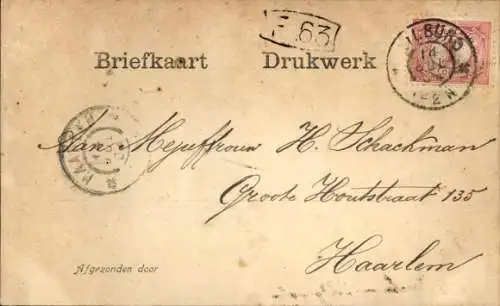 F 63
TILBURG
12-2N
Briefkaart Drukwerk
HAARLEM
Aan Mejuffrouw H. Schackman
Groote Houtstraat 135
Haarlem
Afgezonden door